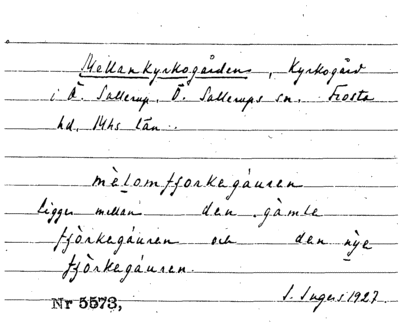 Mellankyrkogården, Kyrkogård
i Ö. Sallerup, Ö. Sallerups sn. Frosta
hd. Mhs län.
mèlomfjorkegáuren
ligger mellan den gàmle
fjòrkegáuren och den nỳe
fjòrkegáuren.
Nr 5573, I. Ingers 1927.